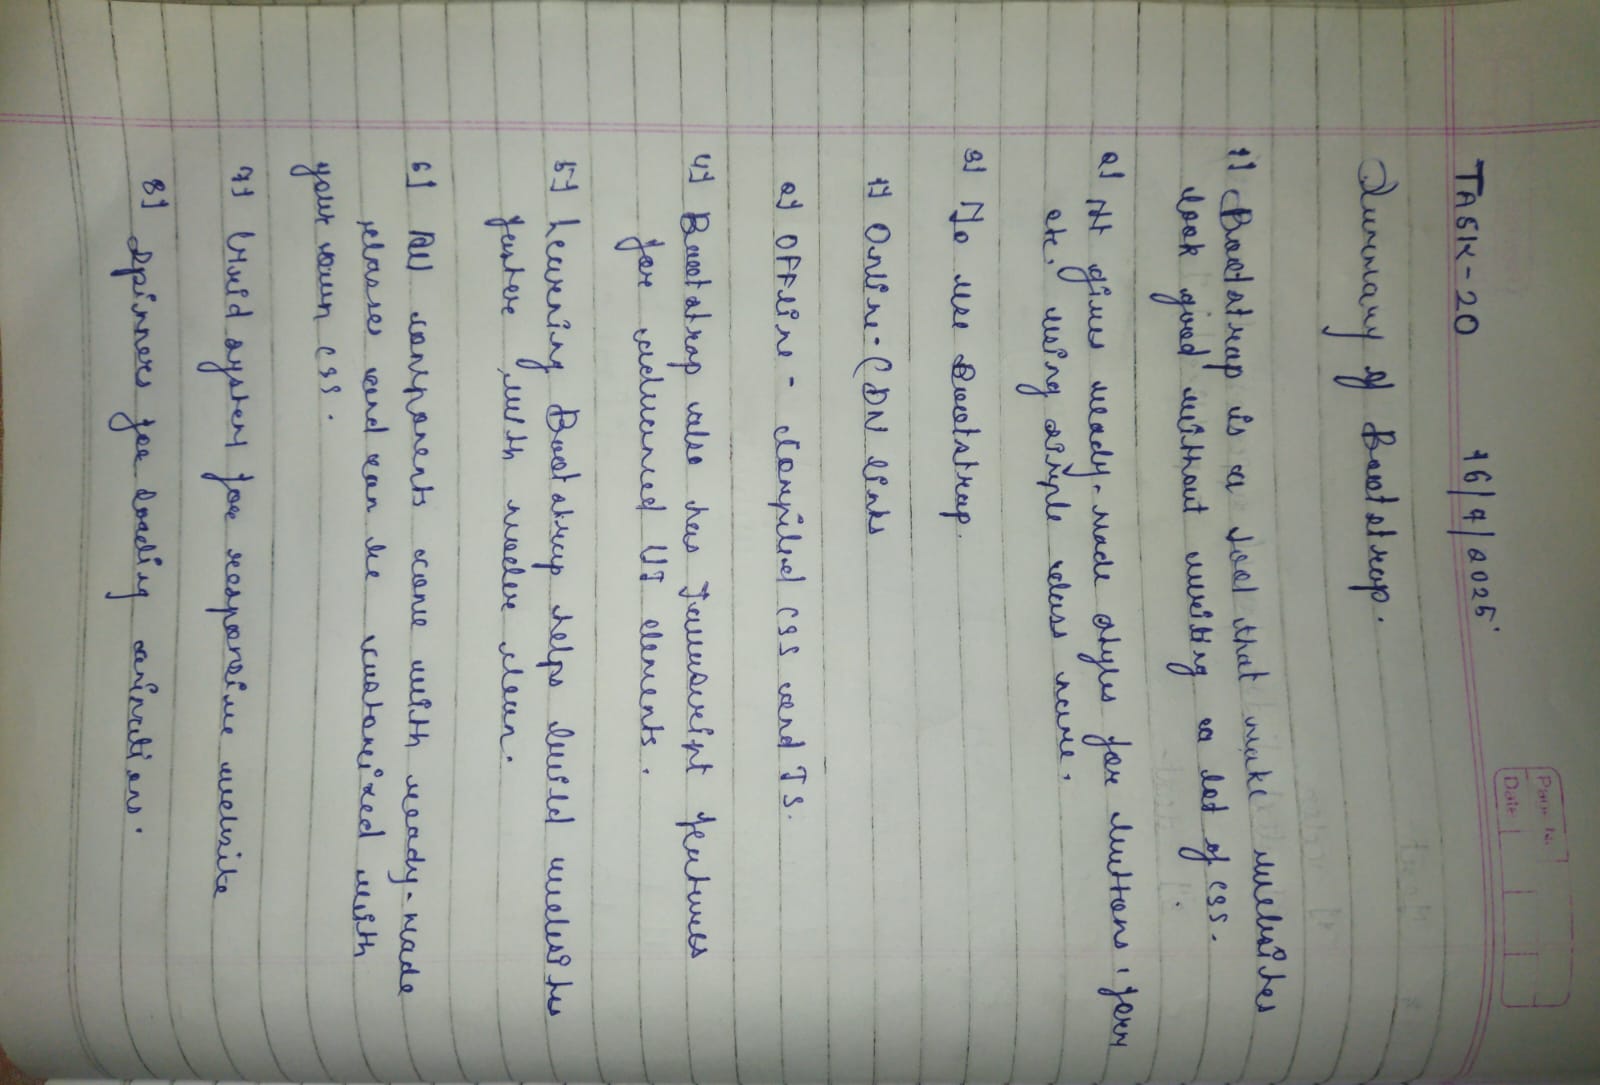 Page No.
Date
TASK-20 16/7/2025
Summary of Bootstrap.
1) Bootstrap is a tool that make websites
look good without writing a lot of CSS.
2) It gives ready-made styles for buttons, form
etc. using simple class name.
3) To use Bootstrap.
1) Online - CDN links
2) OFFline - Compiled CSS and JS.
4) Bootstrap also has Javascript features
for advanced UI elements.
5) Learning Bootstrap helps build websites
faster with moder clean.
6) All components come with ready-made
classes and can be customized with
your own CSS.
7) Grid system for responsive website
8) Spinners for loading animations.